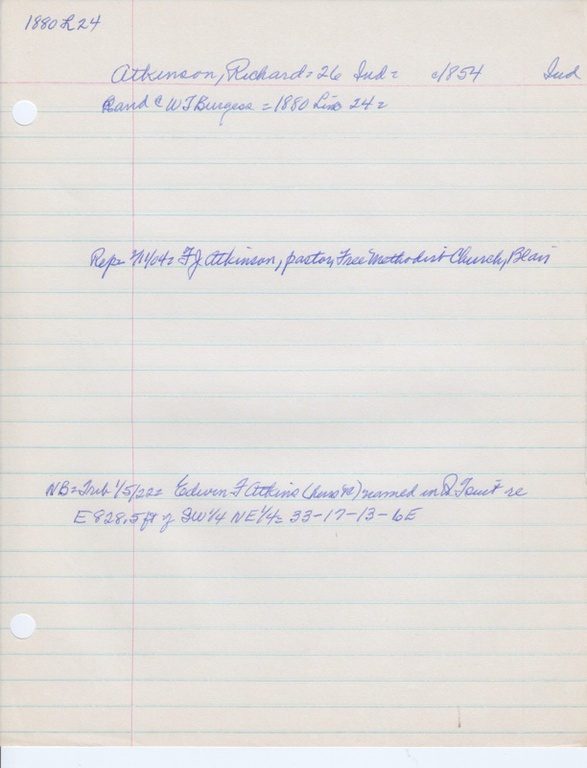 1880 L 24
Atkinson, Richard = 26 Ind = c1854 Ind
and c W T Burgess = 1880 Line 24 =
Rep = F J Atkinson, pastor, Free Methodist Church, Blair
NB = Trib 1/5/22 = Edwin F Atkins named in Q T suit re
E 828.5 ft of SW 1/4 NE 1/4 = 33-17-13-6E